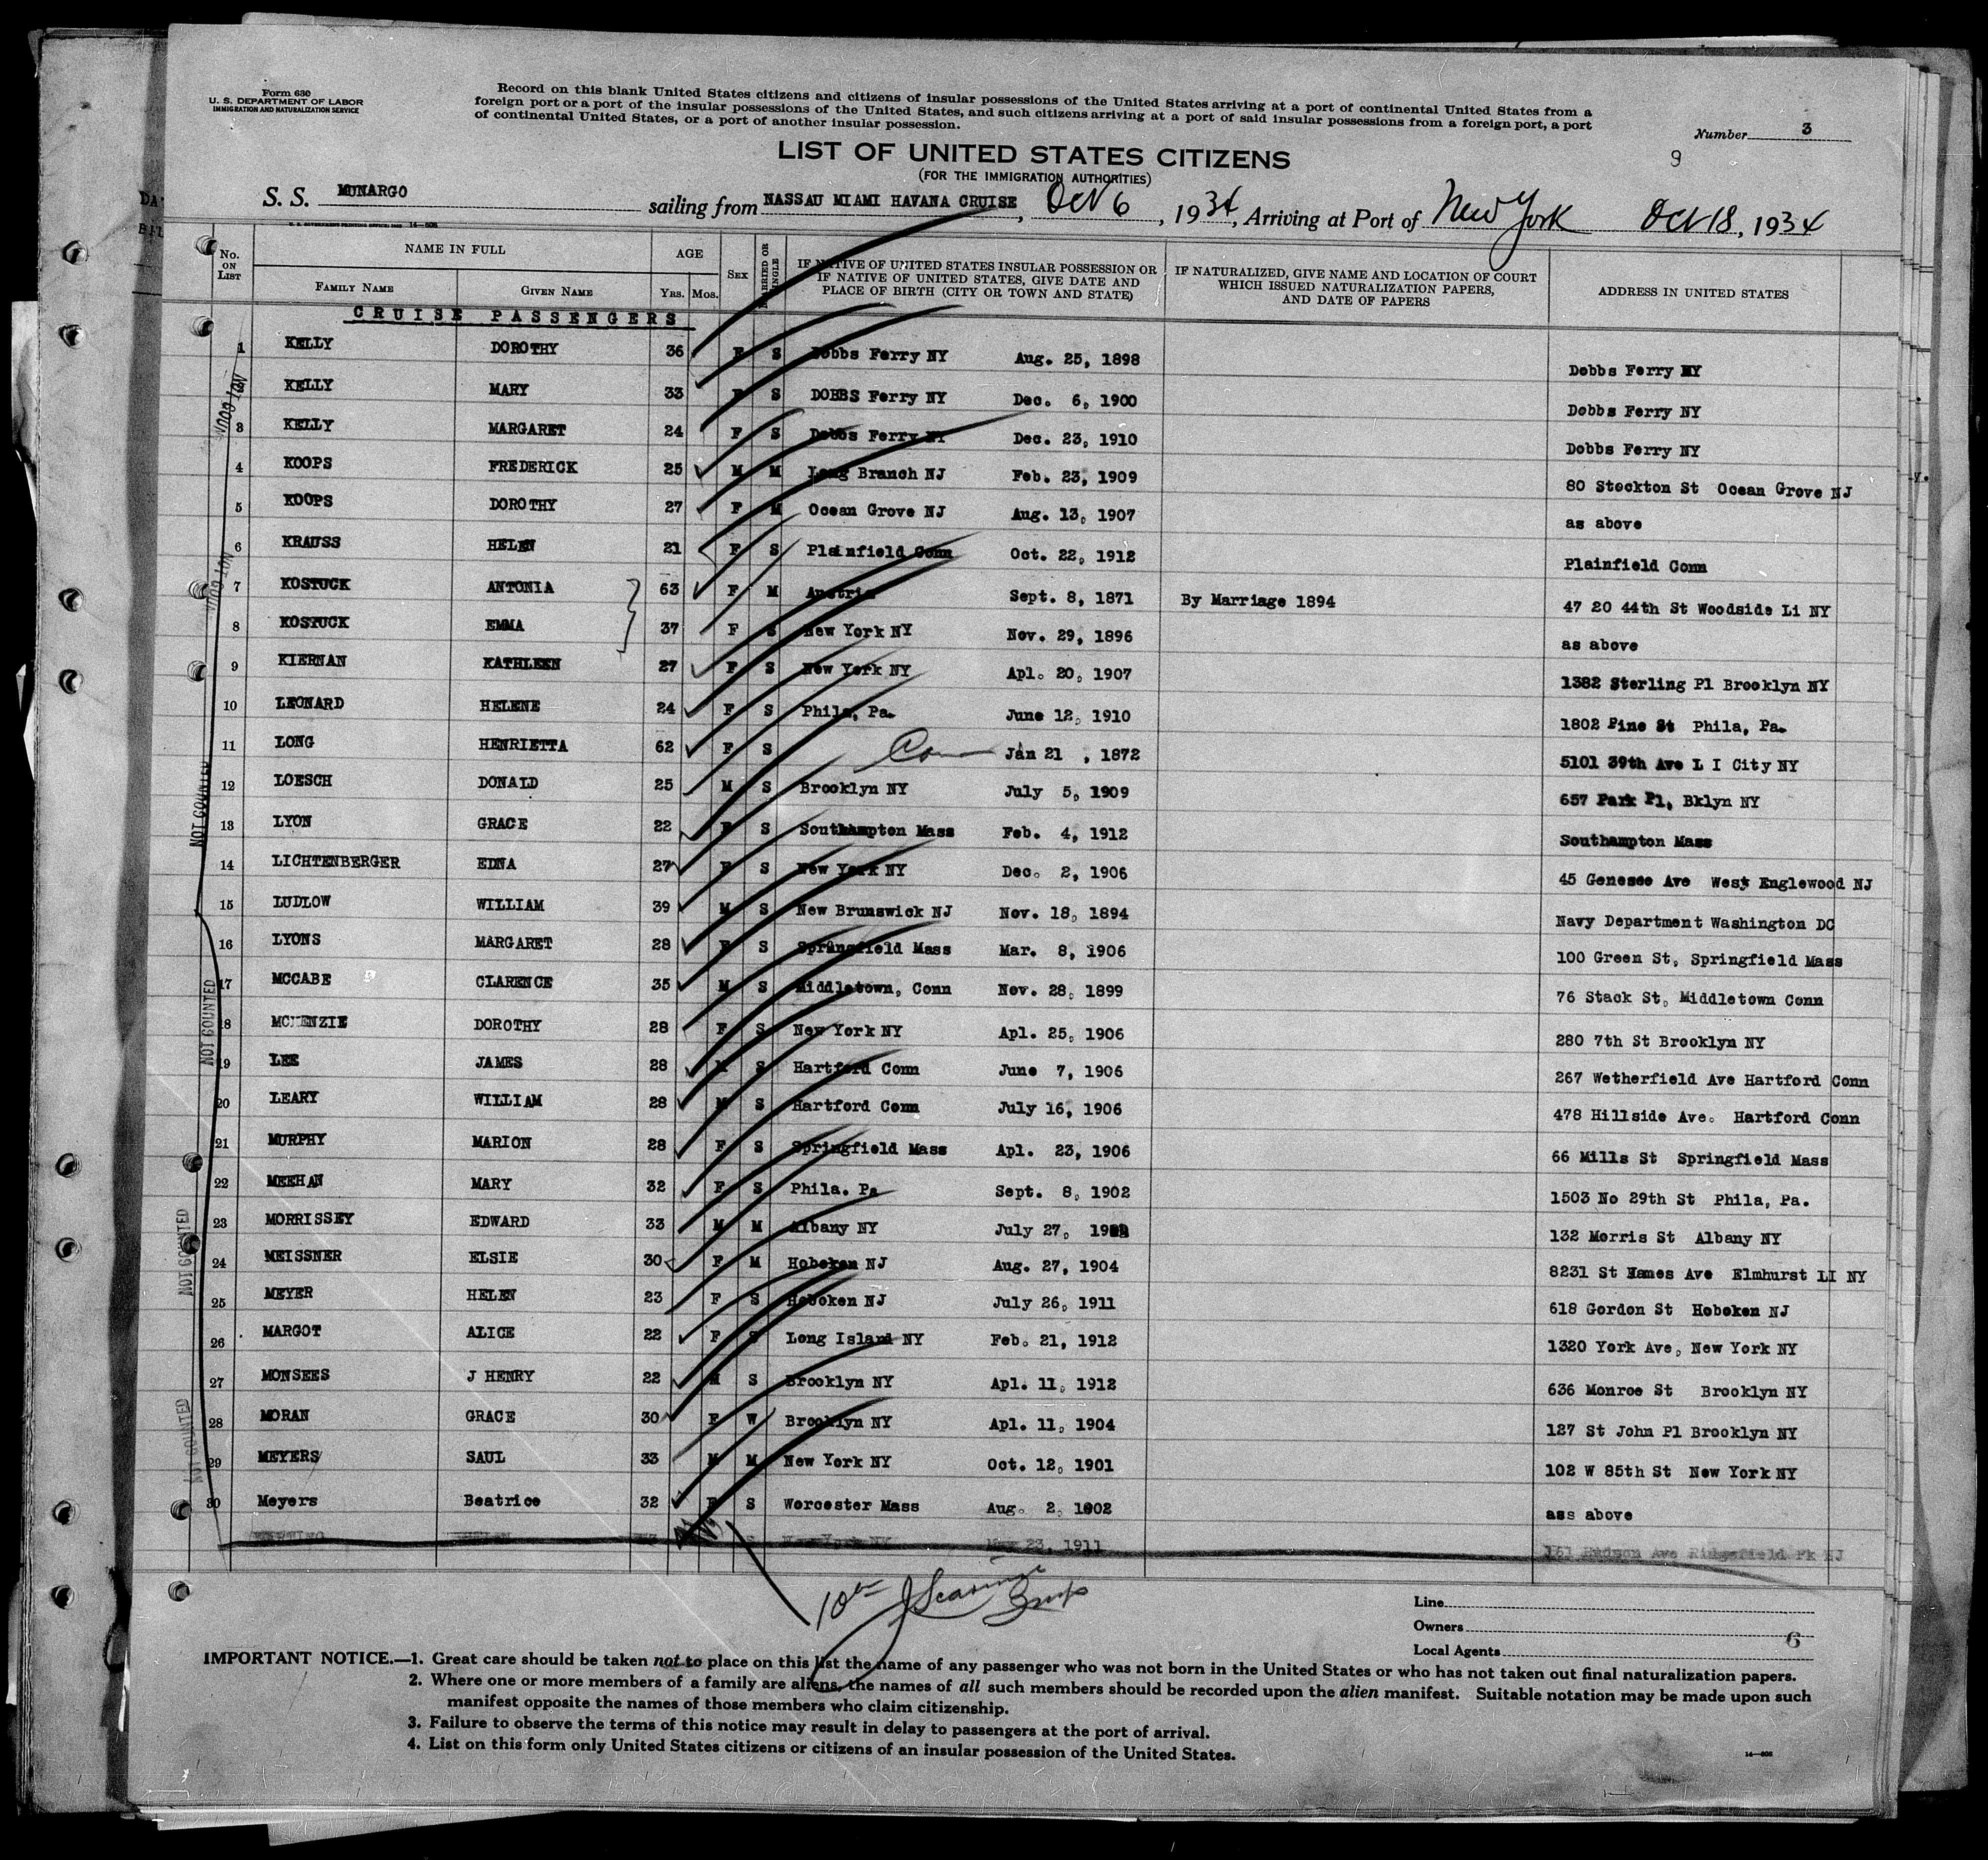 Form 630
U. S. DEPARTMENT OF LABOR
IMMIGRATION AND NATURALIZATION SERVICE
Record on this blank United States citizens and citizens of insular possessions of the United States arriving at a port of continental United States from a
foreign port or a port of the insular possessions of the United States, and such citizens arriving at a port of said insular possessions from a foreign port, a port
of continental United States, or a port of another insular possession.
Number 3
9
LIST OF UNITED STATES CITIZENS
(FOR THE IMMIGRATION AUTHORITIES)
S. S. MUNARGO sailing from NASSAU MIAMI HAVANA CRUISE, Oct 6, 1934, Arriving at Port of New York Oct 18, 1934
No. ON LIST NAME IN FULL FAMILY NAME GIVEN NAME AGE YRS. MOS. SEX MARRIED OR SINGLE IF NATIVE OF UNITED STATES INSULAR POSSESSION OR IF NATIVE OF UNITED STATES, GIVE DATE AND PLACE OF BIRTH (CITY OR TOWN AND STATE) IF NATURALIZED, GIVE NAME AND LOCATION OF COURT WHICH ISSUED NATURALIZATION PAPERS, AND DATE OF PAPERS ADDRESS IN UNITED STATES
CRUISE PASSENGERS
1 KELLY DOROTHY 36 F S Dobbs Ferry NY Aug. 25, 1898 Dobbs Ferry NY
2 KELLY MARY 33 F S DOBBS Ferry NY Dec. 6, 1900 Dobbs Ferry NY
3 KELLY MARGARET 24 F S Dobbs Ferry NY Dec. 23, 1910 Dobbs Ferry NY
4 KOOPS FREDERICK 25 M M Long Branch NJ Feb. 23, 1909 80 Stockton St Ocean Grove NJ
5 KOOPS DOROTHY 27 F M Ocean Grove NJ Aug. 13, 1907 as above
6 KRAUSS HELEN 21 F S Plainfield Conn Oct. 22, 1912 Plainfield Conn
7 KOSTUCK ANTONIA 63 F M Austria Sept. 8, 1871 By Marriage 1894 47 20 44th St Woodside Li NY
8 KOSTUCK EMMA 37 F S New York NY Nov. 29, 1896 as above
9 KIERNAN KATHLEEN 27 F S New York NY Apl. 20, 1907 1382 Sterling Pl Brooklyn NY
10 LEONARD HELENE 24 F S Phila, Pa. June 12, 1910 1802 Pine St Phila, Pa.
11 LONG HENRIETTA 62 F S Conn Jan 21 , 1872 5101 39th Ave L I City NY
12 LOESCH DONALD 25 M S Brooklyn NY July 5, 1909 657 Park Pl, Bklyn NY
13 LYON GRACE 22 F S Southampton Mass Feb. 4, 1912 Southampton Mass
14 LICHTENBERGER EDNA 27 F S New York NY Dec. 2, 1906 45 Genesee Ave West Englewood NJ
15 LUDLOW WILLIAM 39 M S New Brunswick NJ Nov. 18, 1894 Navy Department Washington DC
16 LYONS MARGARET 28 F S Springfield Mass Mar. 8, 1906 100 Green St, Springfield Mass
17 MCCABE CLARENCE 35 M S Middletown, Conn Nov. 28, 1899 76 Stack St, Middletown Conn
18 MCKENZIE DOROTHY 28 F S New York NY Apl. 25, 1906 280 7th St Brooklyn NY
19 LEE JAMES 28 M S Hartford Conn June 7, 1906 267 Wetherfield Ave Hartford Conn
20 LEARY WILLIAM 28 M S Hartford Conn July 16, 1906 478 Hillside Ave. Hartford Conn
21 MURPHY MARION 28 F S Springfield Mass Apl. 23, 1906 66 Mills St Springfield Mass
22 MEEHAN MARY 32 F S Phila. Pa Sept. 8, 1902 1503 No 29th St Phila, Pa.
23 MORRISSEY EDWARD 33 M M Albany NY July 27, 132 Morris St Albany NY
24 MEISSNER ELSIE 30 F M Hoboken NJ Aug. 27, 1904 8231 St Hames Ave Elmhurst LI NY
25 MEYER HELEN 23 F S Hoboken NJ July 26, 1911 618 Gordon St Hoboken NJ
26 MARGOT ALICE 22 F S Long Island NY Feb. 21, 1912 1320 York Ave, New York NY
27 MONSEES J HENRY 22 M S Brooklyn NY Apl. 11, 1912 636 Monroe St Brooklyn NY
28 MORAN GRACE 30 F W Brooklyn NY Apl. 11, 1904 127 St John Pl Brooklyn NY
29 MEYERS SAUL 33 M M New York NY Oct. 12, 1901 102 W 85th St New York NY
30 Meyers Beatrice 32 F S Worcester Mass Aug. 2, 1902 ass above
HELEN New York NY May 23, 1911 161 Hudson Ave Ridgefield Pk NJ
NOT COUNTED
NOT COUNTED
NOT COUNTED
NOT COUNTED
NOT COUNTED
NOT COUNTED
Line
Owners
Local Agents
6
IMPORTANT NOTICE.—1. Great care should be taken not to place on this list the name of any passenger who was not born in the United States or who has not taken out final naturalization papers.
2. Where one or more members of a family are aliens, the names of all such members should be recorded upon the alien manifest. Suitable notation may be made upon such
manifest opposite the names of those members who claim citizenship.
3. Failure to observe the terms of this notice may result in delay to passengers at the port of arrival.
4. List on this form only United States citizens or citizens of an insular possession of the United States.